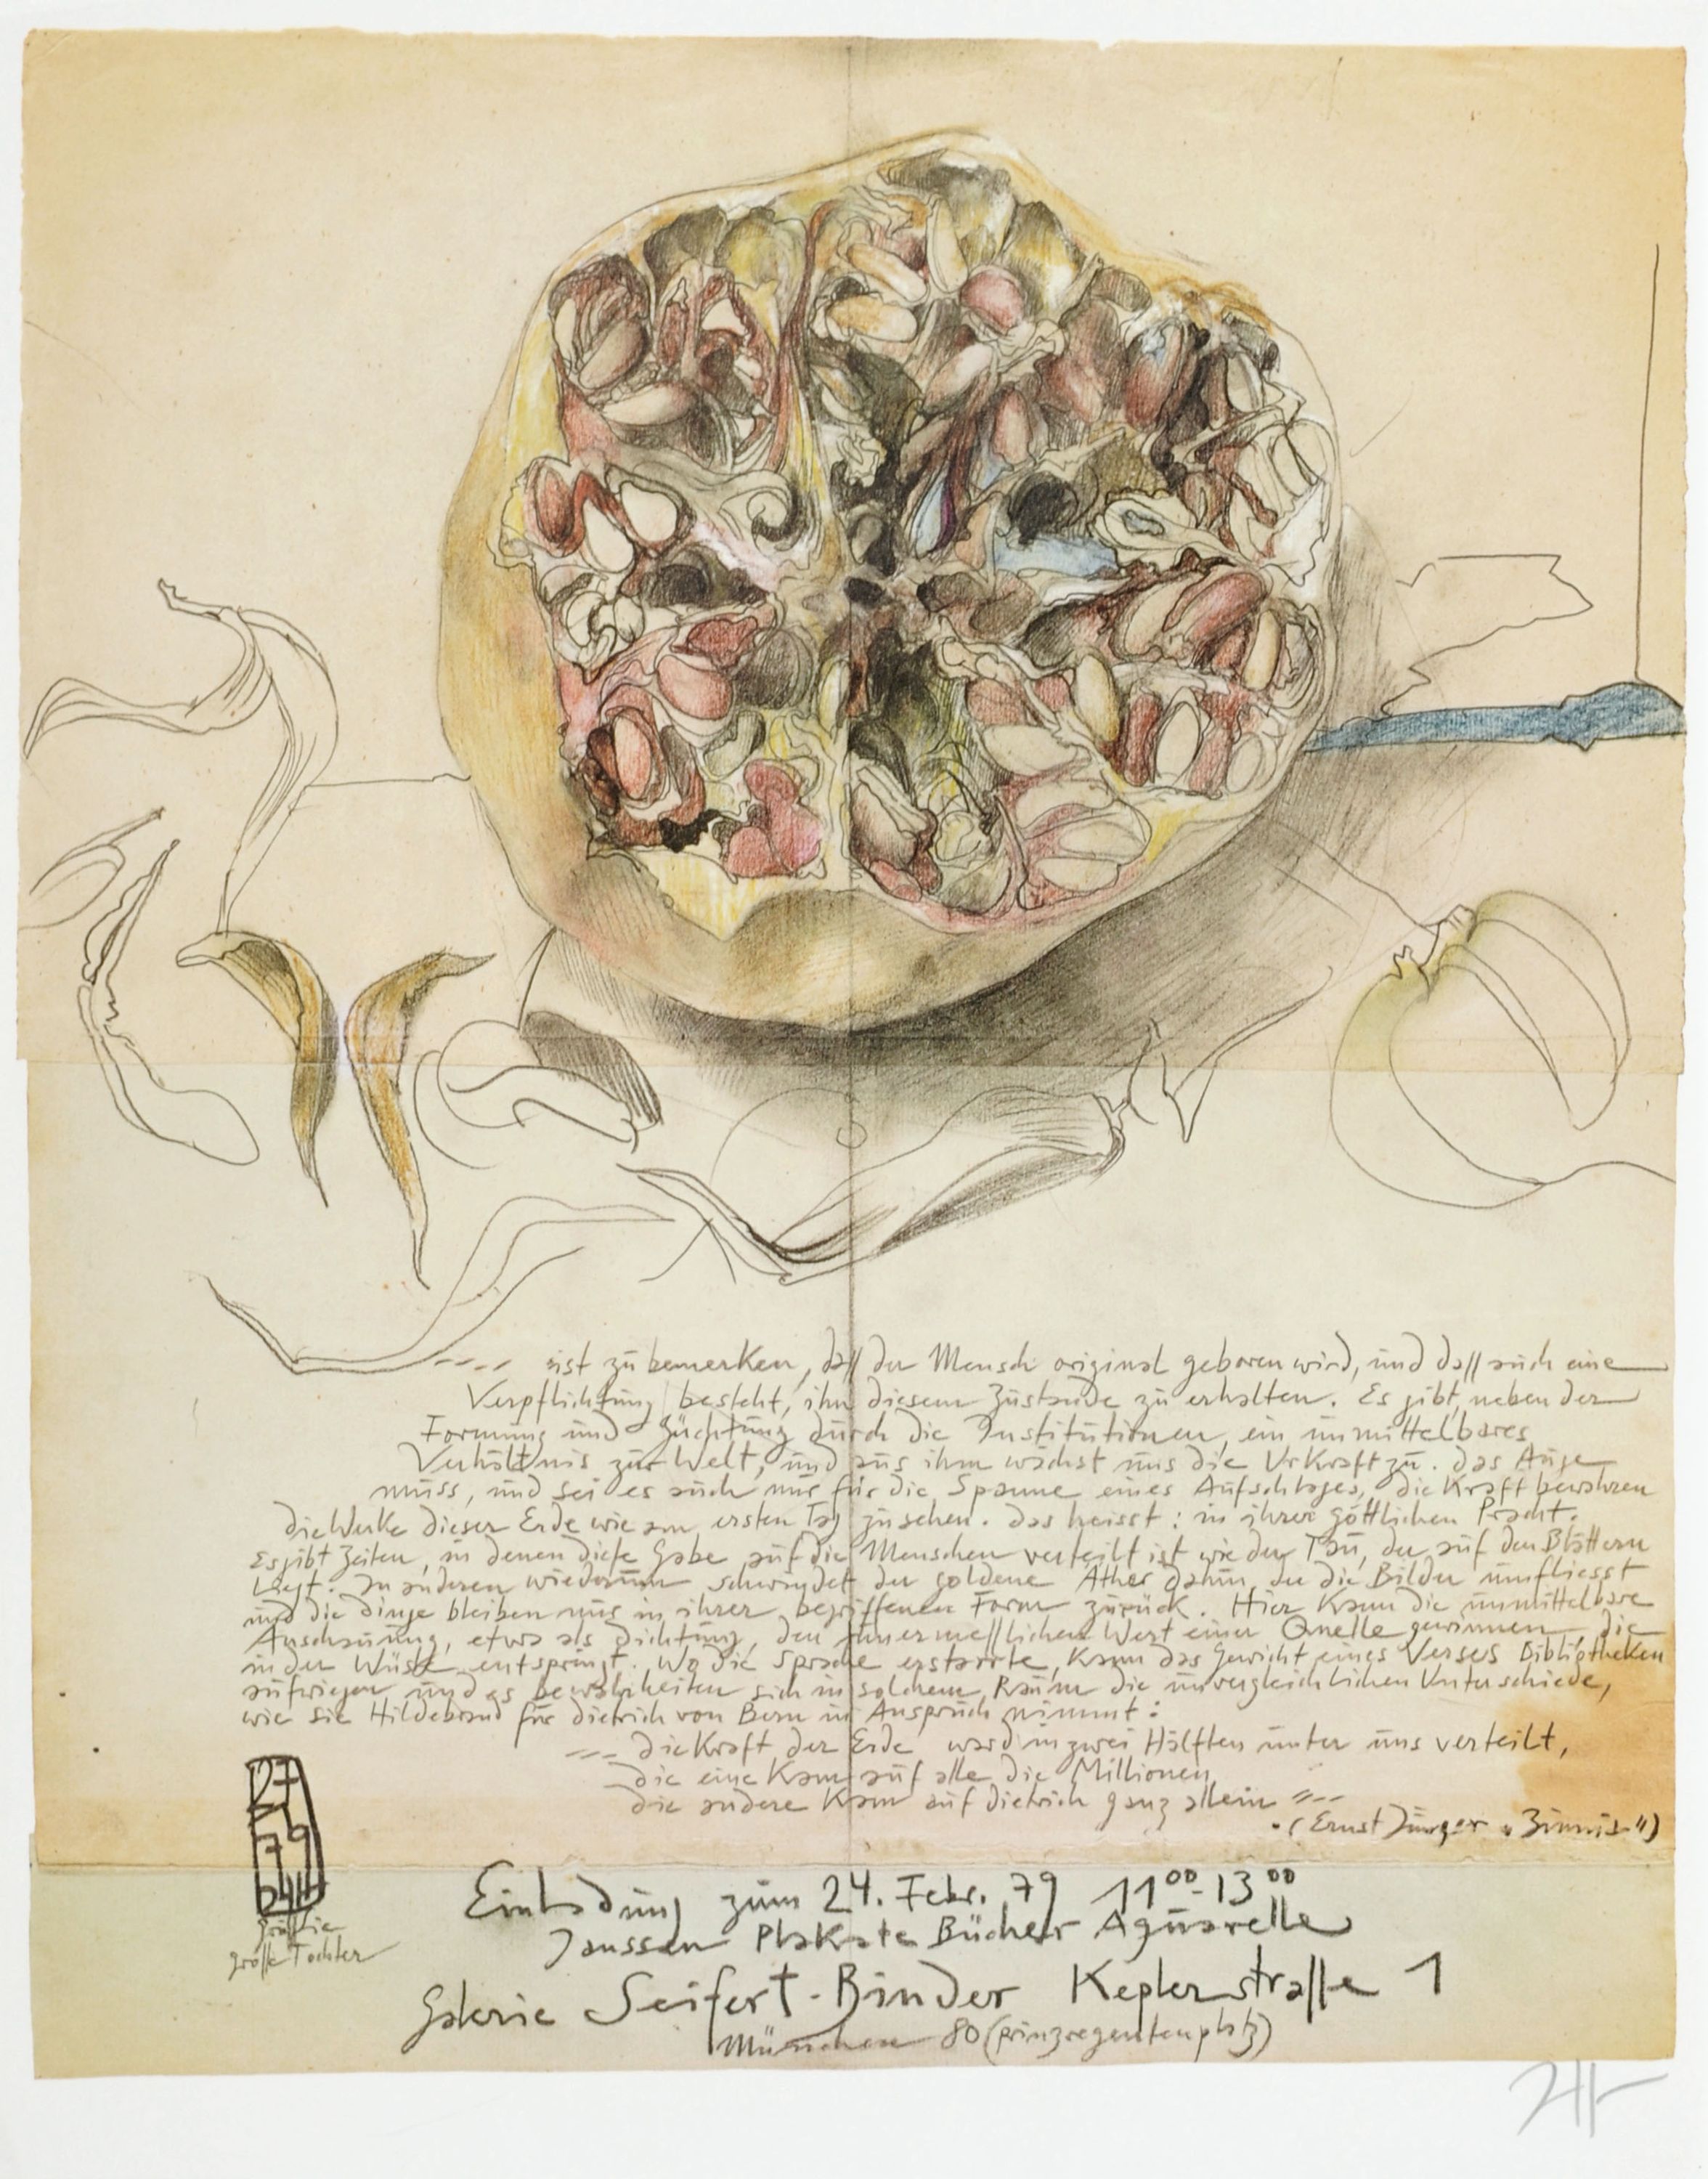 ---- ist zu bemerken, daß der Mensch original geboren wird, und daß auch eine
Verpflichtung besteht, ihn diesem Zustande zu erhalten. Es gibt, neben der
Formung und Züchtung durch die Institutionen, ein unmittelbares
Verhältnis zur Welt, und aus ihm wächst uns die Urkraft zu. Das Auge
muss, und sei es auch nur für die Spanne eines Aufschlages, die Kraft bewahren
die Werke dieser Erde wie am ersten Tag zu sehen. Das heisst: in ihrer göttlichen Pracht.
Es gibt Zeiten, in denen diese Gabe auf die Menschen verteilt ist wie der Tau, der auf den Blättern
liegt. In anderen wiederum schwindet der goldene Äther dahin, der die Bilder umfliesst
und die Dinge bleiben uns in ihrer begriffenen Form zurück. Hier kann die unmittelbare
Anschauung, etwa als Dichtung, den unermeßlichen Wert einer Quelle gewinnen, die
in der Wüste entspringt. Wo die Sprache erstarrte, kann das Gewicht eines Verses Bibliotheken
aufwiegen und es bewahrheiten sich in solchem Raum die unvergleichlichen Unterschiede,
wie sie Hildebrand für Dietrich von Bern in Anspruch nimmt:
--- die Kraft der Erde ward in zwei Hälften unter uns verteilt,
die eine kam auf alle die Millionen
die andere kam auf Dietrich ganz allein ---
(Ernst Jünger "Zinnia")
27
79
große Tochter
Einladung zum 24. Febr. 79 11⁰⁰-13⁰⁰
Janssen Plakate Bücher Aquarelle
Galerie Seifert-Binder Keplerstraße 1
München 80 (prinzregentenplatz)